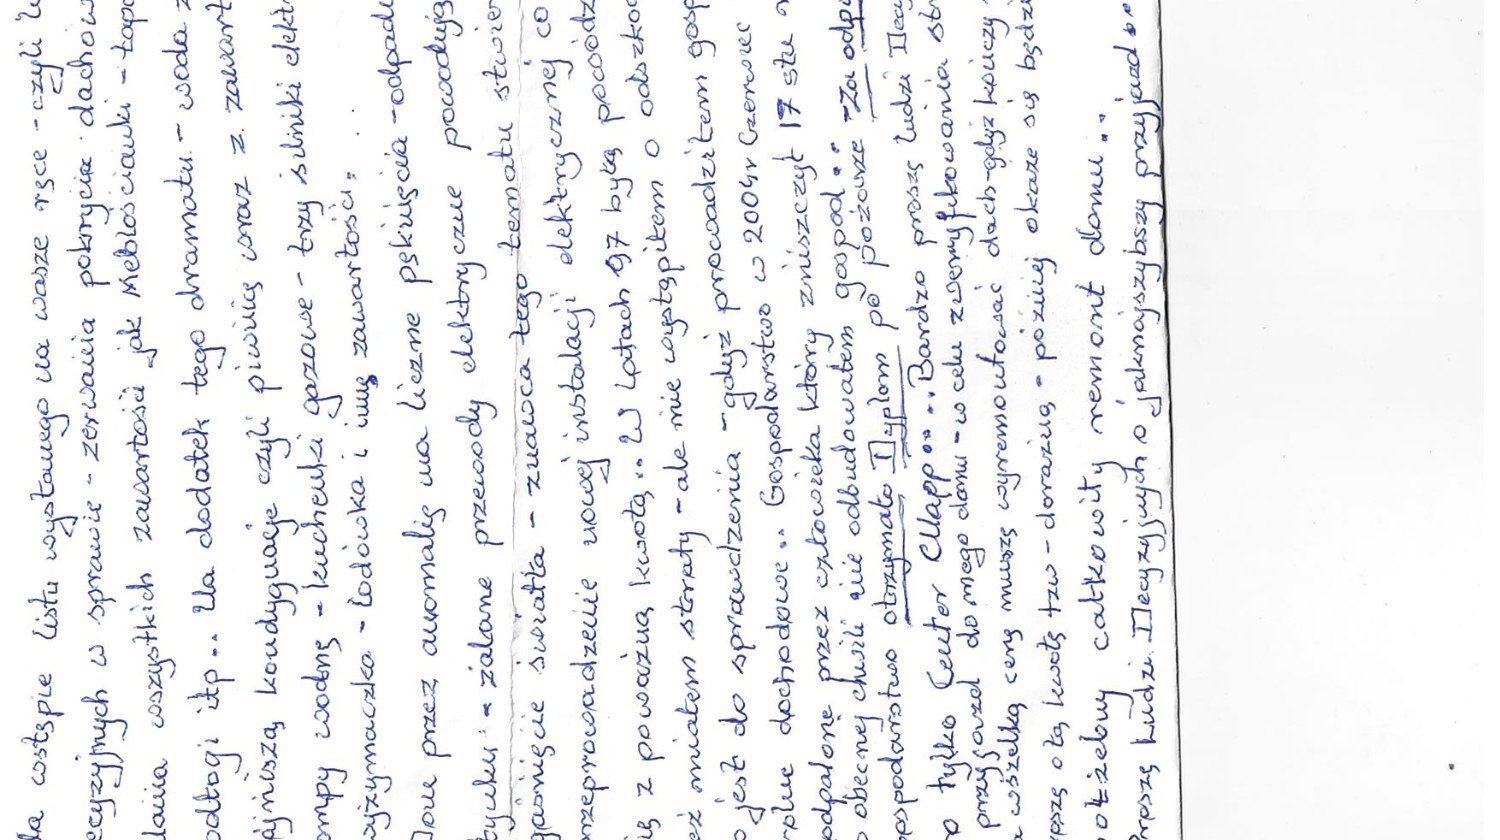 wstępie listu wystanego na wasze ręce - czyli
ecyzyjnych w sprawie - zerwania pokrycia dachow
dania wszystkich zawartości jak Meblościanki - tapc
odłogi itp.. Na dodatek tego dramatu - woda z
kondygnację czyli piwnicę wraz z zawart
ompy wodnę - kuchenki gazowe - trzy silniki elektr
wyżymaczka - lodówka i inną zawartość.
Dom przez anomalię ma liczne pęknięcia - odpadu
tynku - zalane przewody elektryczne powodują
gaśnięcie światła - znawca tego tematu stwier
przeprowadzenie nowej instalacji elektrycznej co
ię z poważną kwotą.. W latach 97 byłą powódź
eż miałem straty - ale nie wystąpiłem o odszkod
o jest do sprawdzenia - gdyż prowadziłem gosp
olne dochodowe.. Gospodarstwo w 2004r Czerwiec
odpalonę przez człowieka który zniszczył 17 stu
o obecnej chwili nie odbudowałem gospod..
ospodarstwo otrzymało Dyplom po pożarze - Za odpo
o tylko Center Mapp.... Bardzo proszę ludzi Decy
przyjazd do mego domu - w celu zweryfikowania str
a wszelką cenę muszę wyremontować dach - gdyż kończy
oszę o tą kwotę tzw - doraźną - później okaże się będzi
otrzebny całkowity remont domu..
Proszę Ludzi Decyzyjnych o jaknajszybszy przyjazd...